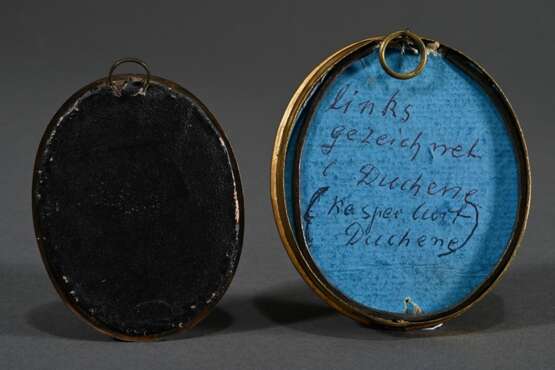 links
gezeichnet
C Duchene
(Kasper
Duchene)